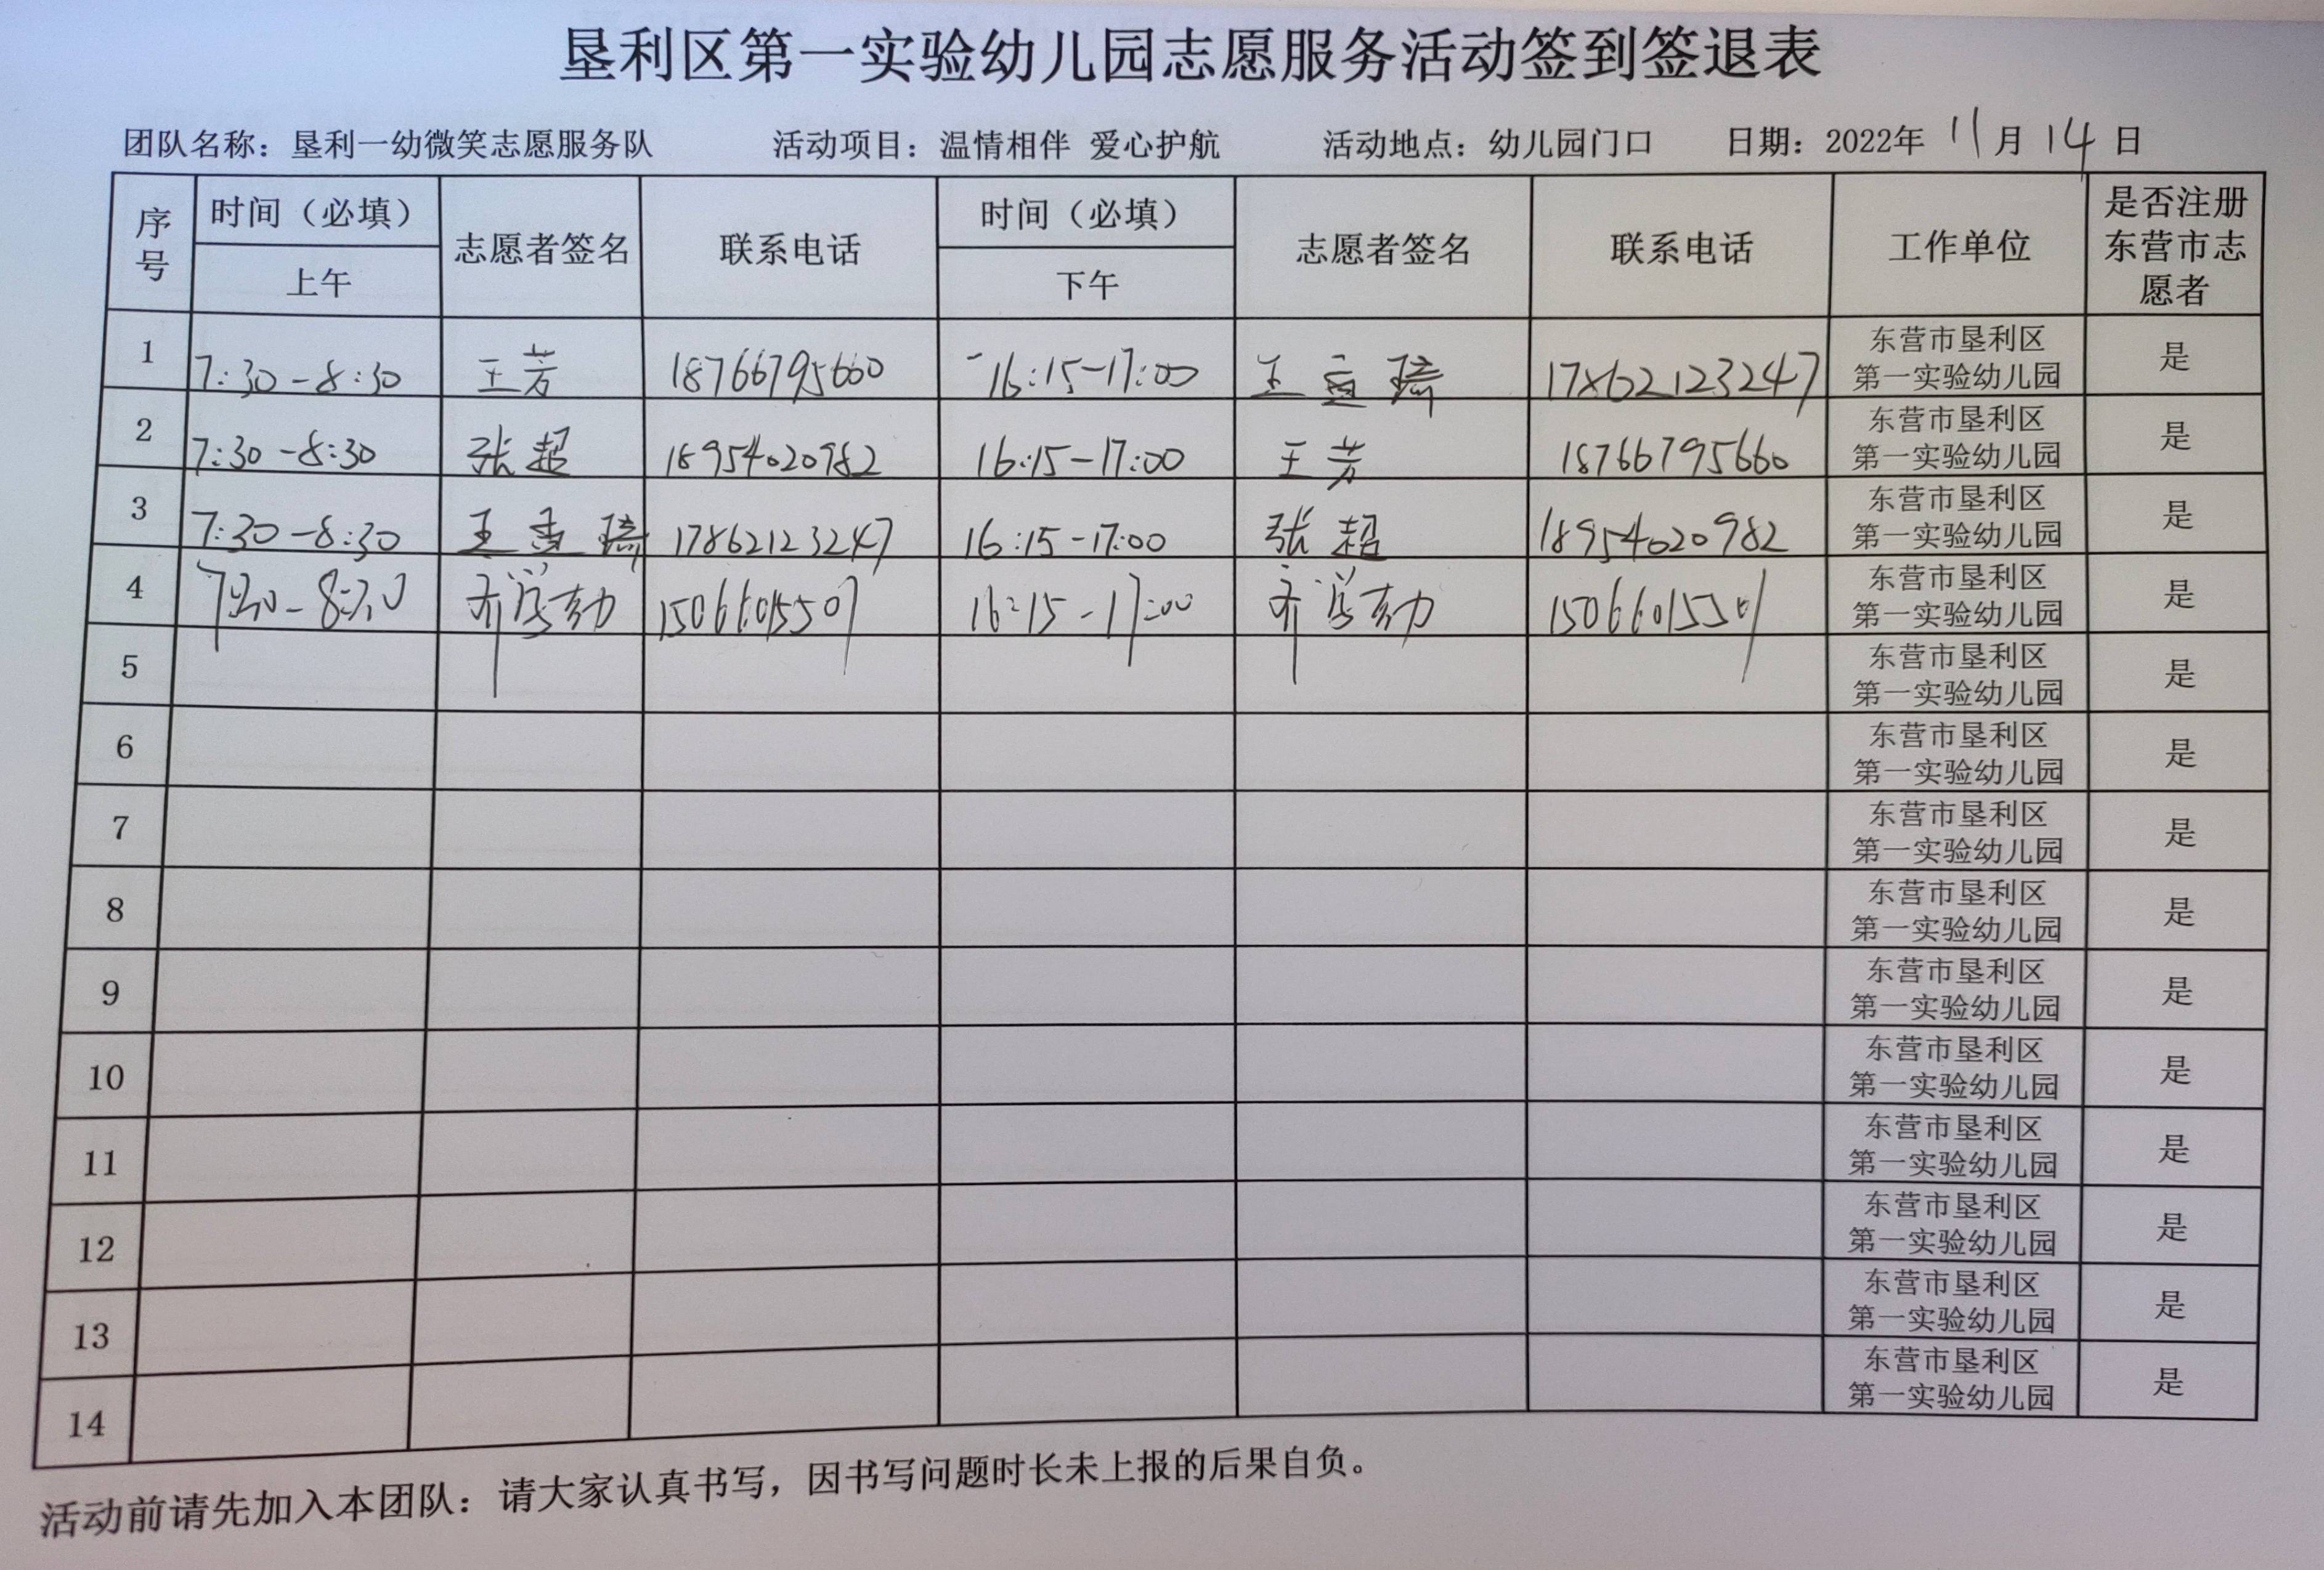 垦利区第一实验幼儿园志愿服务活动签到签退表
团队名称：垦利一幼微笑志愿服务队 活动项目：温情相伴 爱心护航 活动地点：幼儿园门口 日期：2022年 11 月 14 日
序号 时间（必填） 志愿者签名 联系电话 时间（必填） 志愿者签名 联系电话 工作单位 是否注册东营市志愿者
上午 下午
1 7:30-8:30 王芳 18766795660 16:15-17:00 王 17862123247 东营市垦利区第一实验幼儿园 是
2 7:30-8:30 张超 18954020982 16:15-17:00 王芳 18766795660 东营市垦利区第一实验幼儿园 是
3 7:30-8:30 王 17862123247 16:15-17:00 张超 18954020982 东营市垦利区第一实验幼儿园 是
4 7:30-8:30 15066015507 16:15-17:00 15066015507 东营市垦利区第一实验幼儿园 是
5 东营市垦利区第一实验幼儿园 是
6 东营市垦利区第一实验幼儿园 是
7 东营市垦利区第一实验幼儿园 是
8 东营市垦利区第一实验幼儿园 是
9 东营市垦利区第一实验幼儿园 是
10 东营市垦利区第一实验幼儿园 是
11 东营市垦利区第一实验幼儿园 是
12 东营市垦利区第一实验幼儿园 是
13 东营市垦利区第一实验幼儿园 是
14 东营市垦利区第一实验幼儿园 是
活动前请先加入本团队：请大家认真书写，因书写问题时长未上报的后果自负。